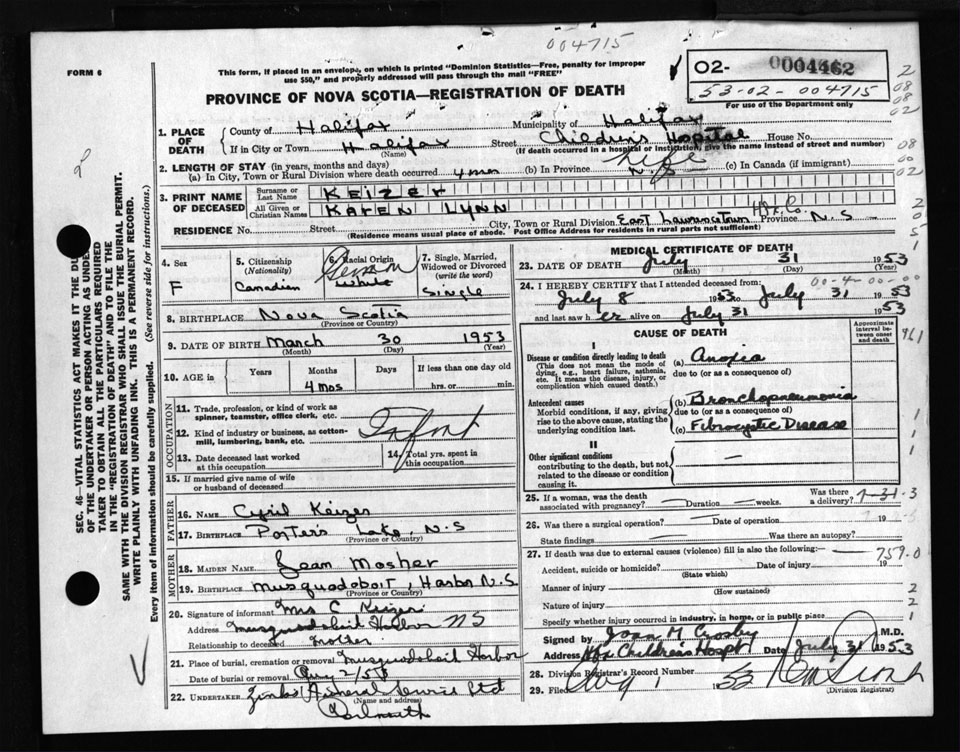 004715
FORM 6
This form, if placed in an envelope, on which is printed "Dominion Statistics—Free, penalty for improper
use $50," and properly addressed will pass through the mail "FREE"
02- 0004462
53-02-004715
For use of the Department only
PROVINCE OF NOVA SCOTIA—REGISTRATION OF DEATH
1. PLACE OF DEATH
County of Halifax Municipality of Halifax
If in City or Town Halifax Street Children's Hospital House No.
(Name) (If death occurred in a hospital or institution, give the name instead of street and number)
2. LENGTH OF STAY (in years, months and days)
(a) In City, Town or Rural Division where death occurred 4 mos (b) In Province Life N.S (c) In Canada (if immigrant)
3. PRINT NAME OF DECEASED
Surname or Last Name KEIZER
All Given or Christian Names KAREN LYNN
RESIDENCE No. Street City, Town or Rural Division East Lawrencetown Hfx. Co. Province N.S
(Residence means usual place of abode. Post Office Address for residents in rural parts not sufficient)
4. Sex F
5. Citizenship (Nationality) Canadian
6. Racial Origin German White
7. Single, Married, Widowed or Divorced (write the word) Single
8. BIRTHPLACE Nova Scotia
(Province or Country)
9. DATE OF BIRTH March 30 1953
(Month) (Day) (Year)
10. AGE in Years Months Days If less than one day old
4 mos hrs. or min.
OCCUPATION
11. Trade, profession, or kind of work as spinner, teamster, office clerk, etc.
12. Kind of industry or business, as cotton-mill, lumbering, bank, etc.
Infant
13. Date deceased last worked at this occupation
14. Total yrs. spent in this occupation
15. If married give name of wife or husband of deceased
FATHER
16. NAME Cyril Keizer
17. BIRTHPLACE Porters Lake, N.S
(Province or Country)
MOTHER
18. MAIDEN NAME Jean Mosher
19. BIRTHPLACE Musquodoboit, Harbor N.S
(Province or Country)
20. Signature of informant Mrs C Keizer
Address Musquodoboit Harbor NS
Relationship to deceased Mother
21. Place of burial, cremation or removal Musquodoboit Harbor
Date of burial or removal Aug 2/53
22. UNDERTAKER
(Name and address)
Dartmouth
MEDICAL CERTIFICATE OF DEATH
23. DATE OF DEATH July 31 1953
(Month) (Day) (Year)
24. I HEREBY CERTIFY that I attended deceased from:
00-4-00-00
July 8 1953 to July 31 1953
and last saw her alive on July 31 1953
CAUSE OF DEATH
Approximate interval between onset and death
I
Disease or condition directly leading to death
(This does not mean the mode of dying, e.g., heart failure, asthenia, etc. It means the disease, injury, or complication which caused death.)
(a) Anoxia
due to (or as a consequence of)
Antecedent causes
Morbid conditions, if any, giving rise to the above cause, stating the underlying condition last.
(b) Bronchopneumonia
due to (or as a consequence of)
(c) Fibrocystic Disease
II
Other significant conditions
contributing to the death, but not related to the disease or condition causing it.
25. If a woman, was the death associated with pregnancy? Duration weeks. Was there a delivery?
26. Was there a surgical operation? Date of operation 19
State findings Was there an autopsy?
27. If death was due to external causes (violence) fill in also the following:— 759.0
Accident, suicide or homicide? Date of injury 19
(State which)
Manner of injury
(How sustained)
Nature of injury
Specify whether injury occurred in industry, in home, or in public place
Signed by Joan M Crosby M.D.
Address Hfx Children's Hospt Date July 31 1953
28. Division Registrar's Record Number
29. Filed Aug 1 1953
(Division Registrar)
SEC. 46—VITAL STATISTICS ACT MAKES IT THE DU
OF THE UNDERTAKER OR PERSON ACTING AS UNDE
TAKER TO OBTAIN ALL THE PARTICULARS REQUIRED
IN THE "REGISTRATION OF DEATH" AND TO FILE THE
SAME WITH THE DIVISION REGISTRAR WHO SHALL ISSUE THE BURIAL PERMIT.
WRITE PLAINLY WITH UNFADING INK. THIS IS A PERMANENT RECORD.
Every item of information should be carefully supplied. (See reverse side for instructions.)